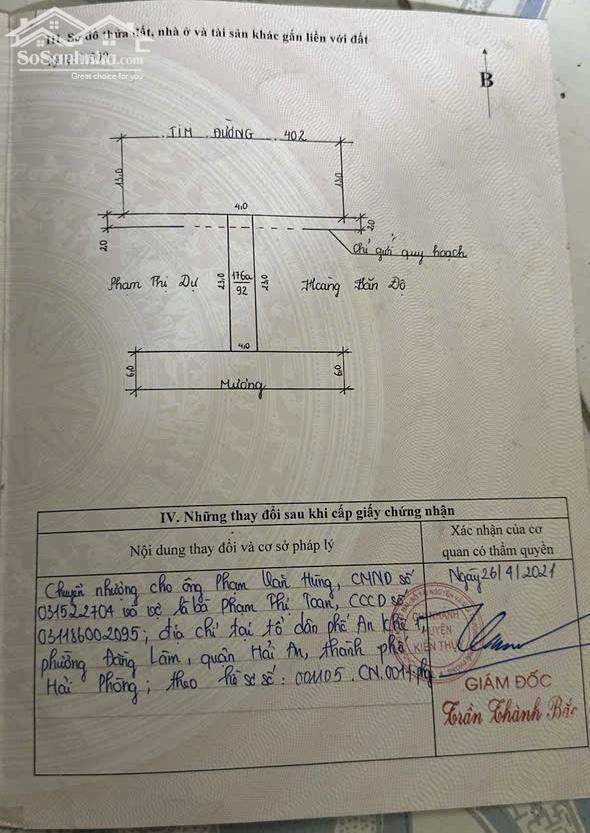 III. Sơ đồ thửa đất, nhà ở và tài sản khác gắn liền với đất
SoSanhnha.com
Great choice for you
B
TIM ĐƯỜNG 402
13,0
13,0
4,0
2,0
2,0
Chỉ giới quy hoạch
Phạm Thị Dự
23,0
176a
92
23,0
Hoàng Văn Độ
4,0
6,0
6,0
Mương
IV. Những thay đổi sau khi cấp giấy chứng nhận
Nội dung thay đổi và cơ sở pháp lý
Xác nhận của cơ
quan có thẩm quyền
Chuyển nhượng cho ông Phạm Văn Hưng, CMND số
031522704 và vợ là bà Phạm Thị Toan, CCCD số
031186002095; địa chỉ tại tổ dân phố An Khê
phường Đằng Lâm, quận Hải An, thành phố
Hải Phòng; theo hồ sơ số: 001105.CN.0017
Ngày 26/4/2021
CHI NHÁNH
HUYỆN
KIẾN THỤY
GIÁM ĐỐC
Trần Thành Bắc